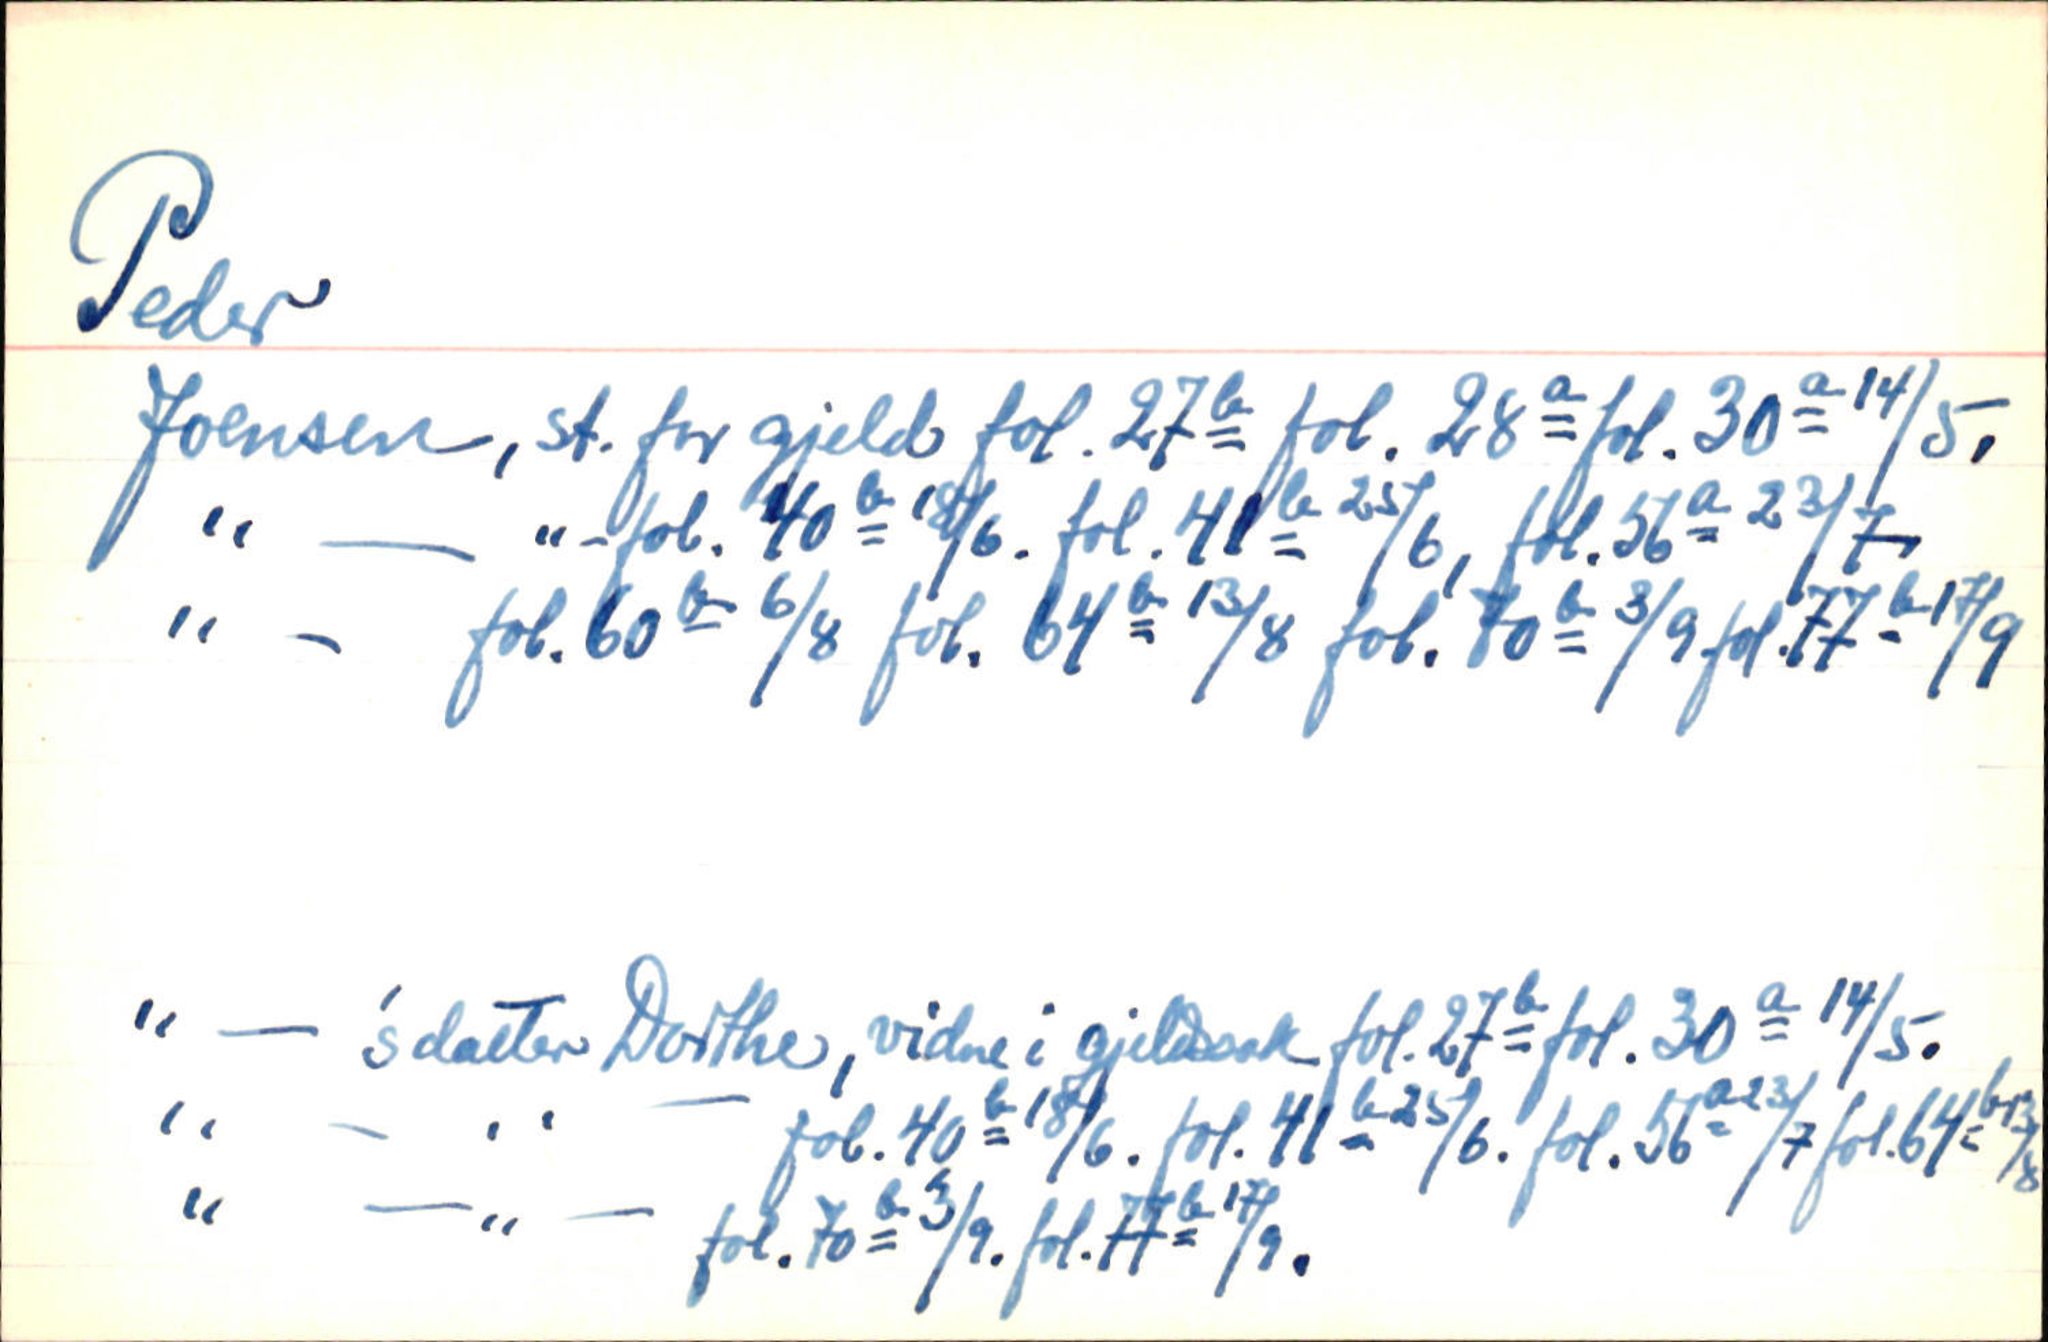 Peder
Joensen, st. for gjeld fol. 27b fol. 28a fol. 30a 14/5.
" — " - fol. 40b 18/6. fol. 41b 25/6, fol. 56a 23/7
" - fol. 60b 6/8 fol. 64b 13/8 fol. 70b 3/9 fol. 77b 17/9
" — 's datter Dorthe, vidne i gjeldssak fol. 27b fol. 30a 14/5.
" - " — fol. 40b 18/6. fol. 41b 25/6. fol. 56a 23/7 fol. 64b 13/8
" — " — fol. 70b 3/9. fol. 77b 17/9.